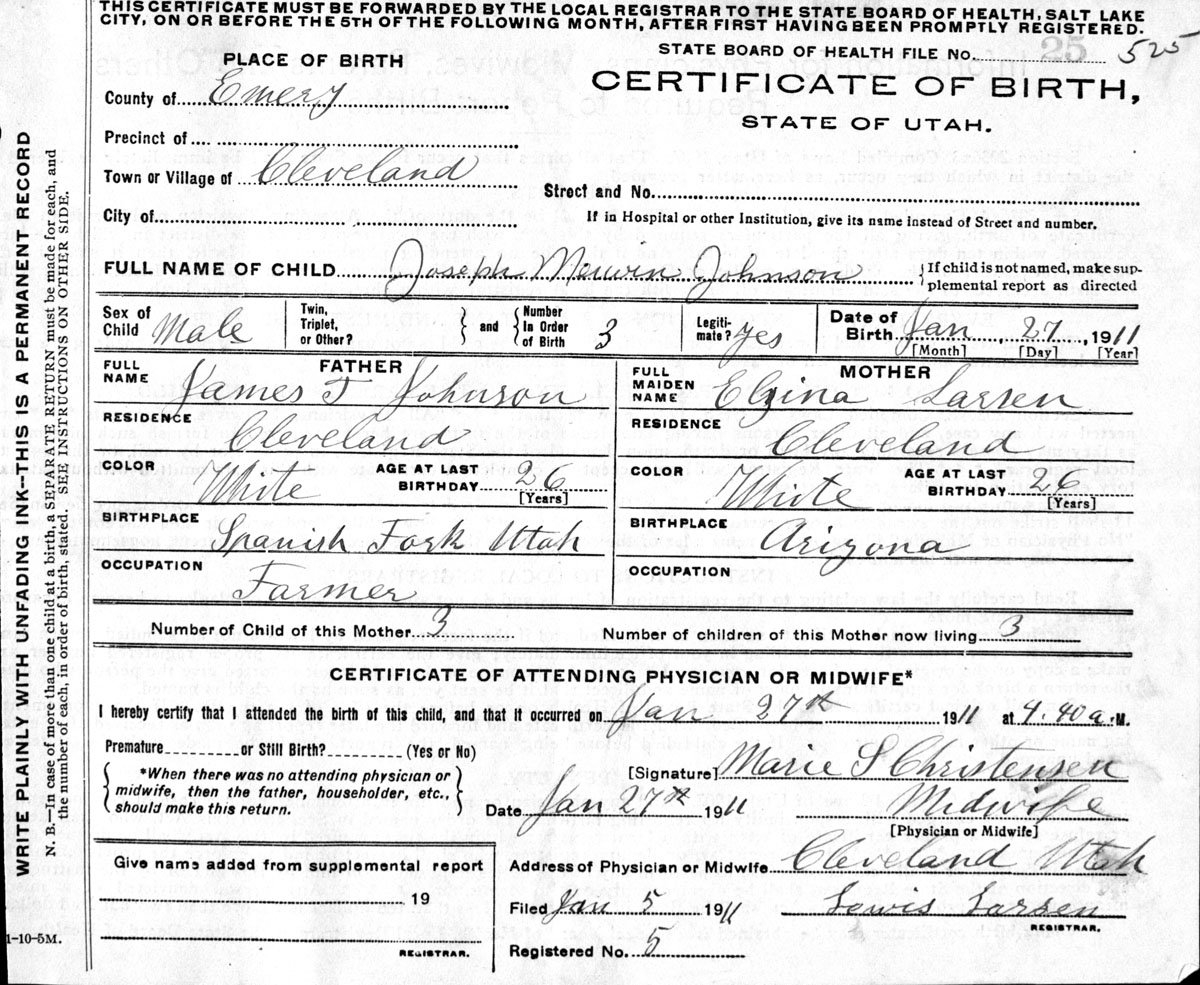 THIS CERTIFICATE MUST BE FORWARDED BY THE LOCAL REGISTRAR TO THE STATE BOARD OF HEALTH, SALT LAKE
CITY, ON OR BEFORE THE 5TH OF THE FOLLOWING MONTH, AFTER FIRST HAVING BEEN PROMPTLY REGISTERED.
STATE BOARD OF HEALTH FILE No. 25 525
PLACE OF BIRTH
CERTIFICATE OF BIRTH,
STATE OF UTAH.
County of Emery
Precinct of
Town or Village of Cleveland
Street and No.
City of
If in Hospital or other Institution, give its name instead of Street and number.
FULL NAME OF CHILD Joseph Merwin Johnson
{If child is not named, make sup-
plemental report as directed
Sex of Child Male
Twin, Triplet, or Other? } and { Number In Order of Birth 3
Legiti-mate? yes
Date of Birth Jan, 27, 1911
[Month] [Day] [Year]
FATHER
FULL NAME James T Johnson
RESIDENCE Cleveland
COLOR White AGE AT LAST BIRTHDAY 26 [Years]
BIRTHPLACE Spanish Fork Utah
OCCUPATION Farmer
MOTHER
FULL MAIDEN NAME Elzina Larsen
RESIDENCE Cleveland
COLOR White AGE AT LAST BIRTHDAY 26 [Years]
BIRTHPLACE Arizona
OCCUPATION
Number of Child of this Mother 3 Number of children of this Mother now living 3
CERTIFICATE OF ATTENDING PHYSICIAN OR MIDWIFE*
I hereby certify that I attended the birth of this child, and that it occurred on Jan 27th 1911 at 4.40 a. M.
Premature or Still Birth? (Yes or No)
{ *When there was no attending physician or
midwife, then the father, householder, etc.,
should make this return. }
[Signature] Marie S Christensen
Date Jan 27th 1911 Midwife
[Physician or Midwife]
Give name added from supplemental report
19
REGISTRAR.
Address of Physician or Midwife Cleveland Utah
Filed Jan 5 1911 Lewis Larsen
REGISTRAR.
Registered No. 5
1-10-5M.
WRITE PLAINLY WITH UNFADING INK—THIS IS A PERMANENT RECORD
N. B.—In case of more than one child at a birth, a SEPARATE RETURN must be made for each, and
the number of each, in order of birth, stated. SEE INSTRUCTIONS ON OTHER SIDE.